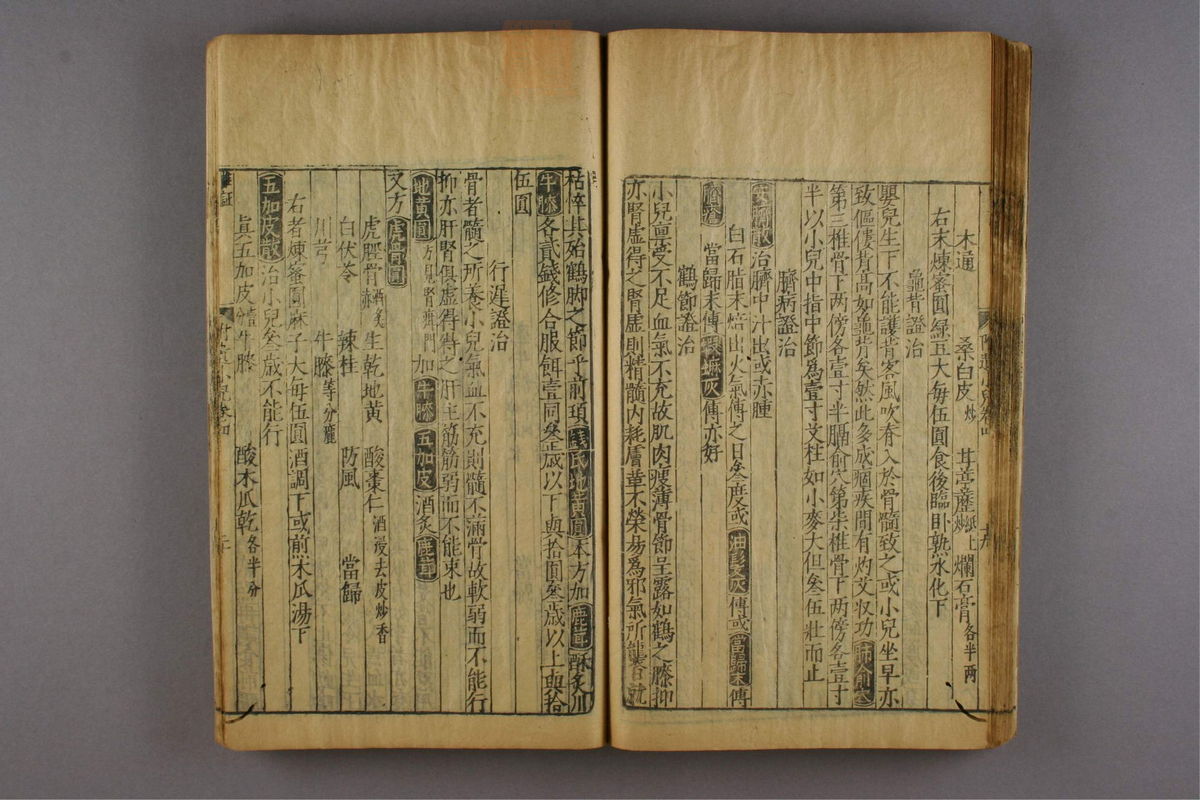 木通 桑白皮炒 甘草 爛石膏各半兩
右末煉蜜圓綠豆大每伍圓食後臨臥熟水化下
龜背證治
嬰兒生下不能護背客風吹脊入於骨髓致之或小兒坐早亦
致傴僂背高如龜背矣然此多成痼疾間有灼艾收功肺俞穴
第三椎骨下兩傍各壹寸半膈俞穴第柒椎骨下兩傍各壹寸
半以小兒中指中節為壹寸艾炷如小麥大但叁伍壯而止
臍病證治
安臍散治臍中汁出或赤腫
白石脂末焙出火氣傅之日叁度或油髮灰傅或當歸末傅
臍瘡 當歸末傅 灰傅亦好
鶴節證治
小兒稟受不足血氣不充故肌肉瘦薄骨節呈露如鶴之膝抑
亦腎虛得之腎虛則精髓內耗膚革不榮易為邪氣所襲日就
枯悴其殆鶴脚之節乎前項錢氏地黃圓本方加鹿茸酥炙川
牛膝各貳錢修合服餌壹同叁歲以下與拾圓叁歲以上與拾
伍圓
行遲證治
骨者髓之所養小兒氣血不充則髓不滿骨故軟弱而不能行
抑亦肝腎俱虛得得之肝主筋筋弱而不能束也
地黃圓方見腎疳門加牛膝五加皮酒炙鹿茸
又方虎骨圓
虎脛骨酒炙赤 生乾地黃 酸棗仁酒浸去皮炒香
白伏苓 辣桂 防風 當歸
川芎 牛膝等分
右者煉蜜圓麻子大每伍圓酒調下或煎木瓜湯下
五加皮散治小兒叁歲不能行
真五加皮 牛膝 酸木瓜乾各半分